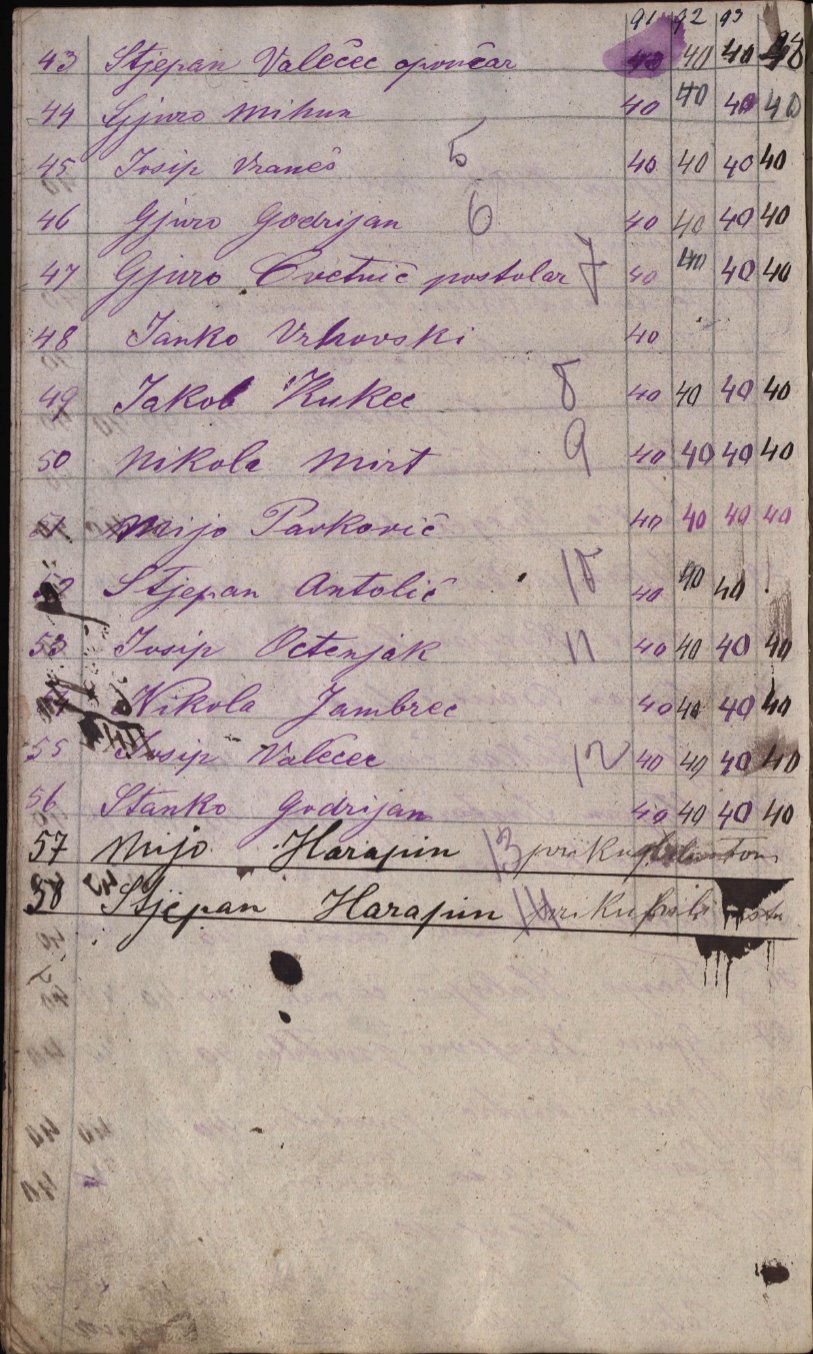 91 92 93 94
43 Stjepan Valečec opončar 40 40 40
44 Gjuro Mihun 40 40 40 40
45 Josip Vraneš 5 40 40 40 40
46 Gjuro Godrijan 6 40 40 40 40
47 Gjuro Cvetnić postolar 7 40 40 40 40
48 Janko Vrhovski 40
49 Jakob Kukec 8 40 40 40 40
50 Nikola Mirt 9 40 40 40 40
51 Mijo Pavković 40 40 40 40
52 Stjepan Antolić 10 40 40 40
53 Josip Octenjak 11 40 40 40 40
54 Nikola Jambrec 40 40 40 40
55 Josip Valecec 12 40 40 40 40
56 Stanko Godrijan 40 40 40 40
57 Mijo Harapin 13
58 Stjepan Harapin 14